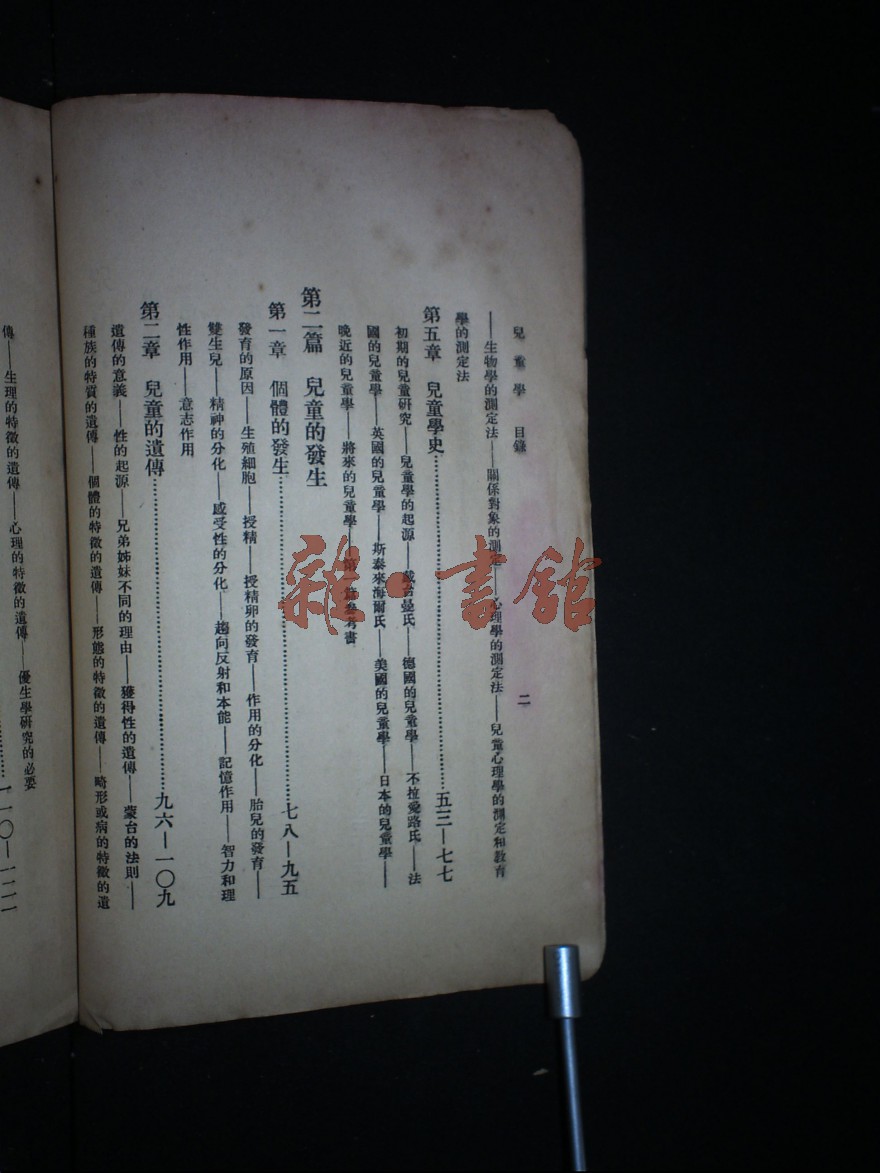 兒童學 目錄
二
——生物學的測定法——關係對象的測定——心理學的測定法——兒童心理學的測定和教育
學的測定法
第五章 兒童學史……五三—七七
初期的兒童研究——兒童學的起源——戚台曼氏——德國的兒童學——不拉愛路氏——法
國的兒童學——英國的兒童學——斯泰來海爾氏——美國的兒童學——日本的兒童學——
晚近的兒童學——將來的兒童學——第一篇參考書
第二篇 兒童的發生
第一章 個體的發生……七八—九五
發育的原因——生殖細胞——授精——授精卵的發育——作用的分化——胎兒的發育——
雙生兒——精神的分化——感受性的分化——趨向反射和本能——記憶作用——智力和理
性作用——意志作用
第二章 兒童的遺傳……九六—一〇九
遺傳的意義——性的起源——兄弟姊妹不同的理由——獲得性的遺傳——蒙台的法則——
種族的特質的遺傳——個體的特徵的遺傳——形態的特徵的遺傳——畸形或病的特徵的遺
傳——生理的特徵的遺傳——心理的特徵的遺傳——優生學研究的必要
……一一〇—一二二
雜·書館